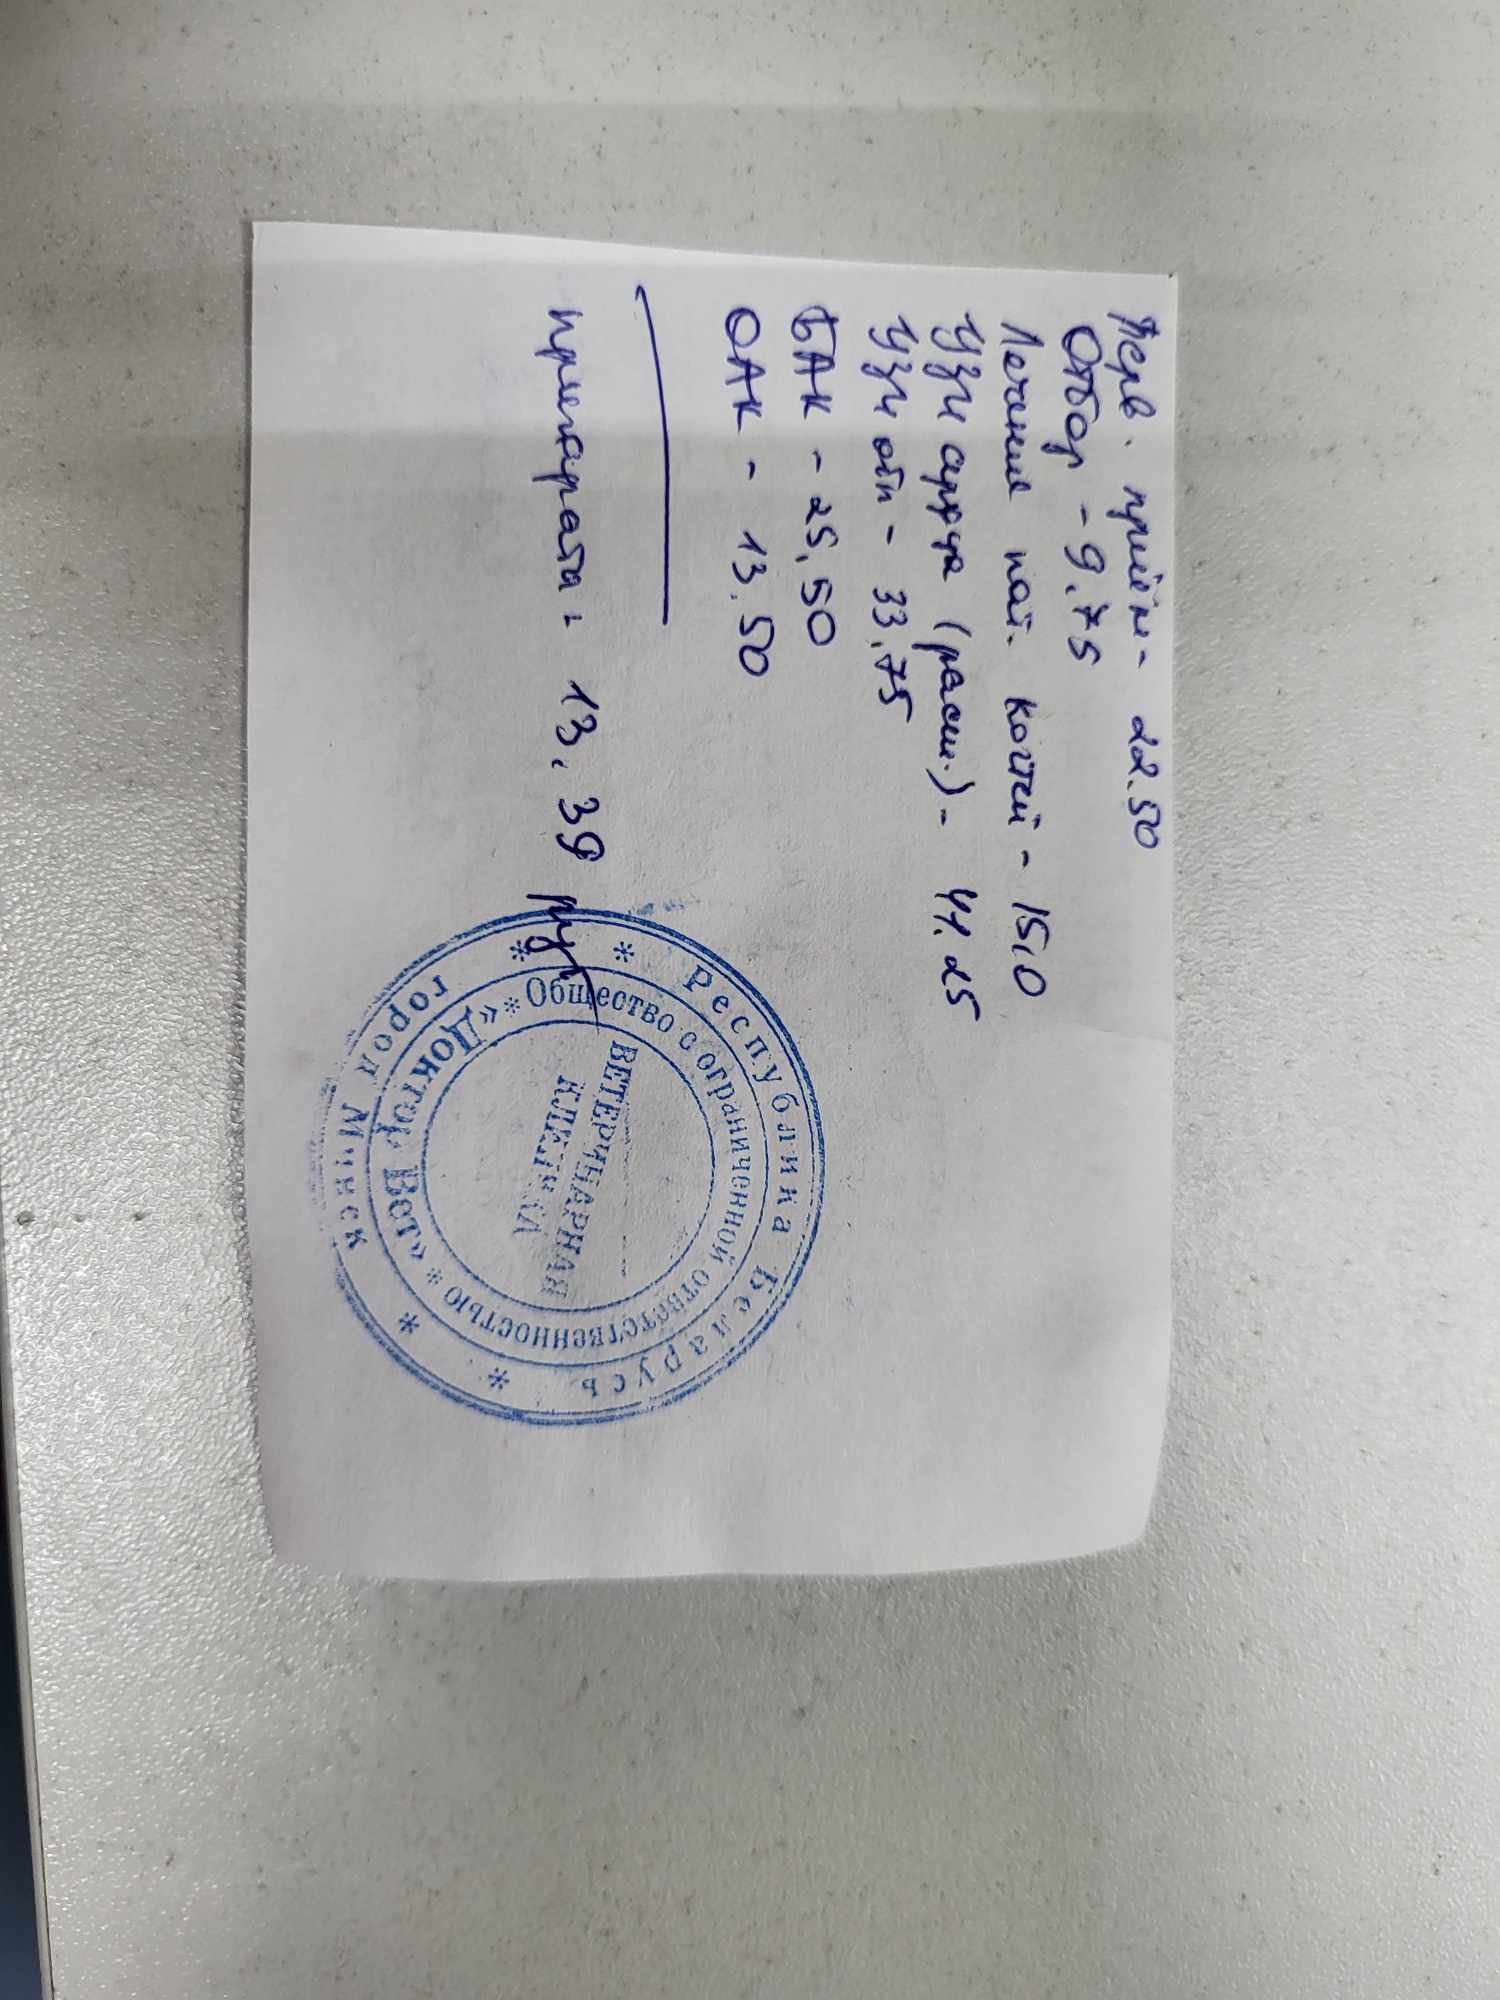 Перв. приём - 22.50
Отбор - 9.75
Лечение пат. когтей - 15,0
УЗИ сердца (расш.) - 41.25
УЗИ обп - 33.75
БАК - 25,50
ОАК - 13.50
препараты: 13,39 руб
* Республика Беларусь *
* город Минск *
* Общество с ограниченной ответственностью *
«Доктор Вет»
ВЕТЕРИНАРНАЯ
КЛИНИКА